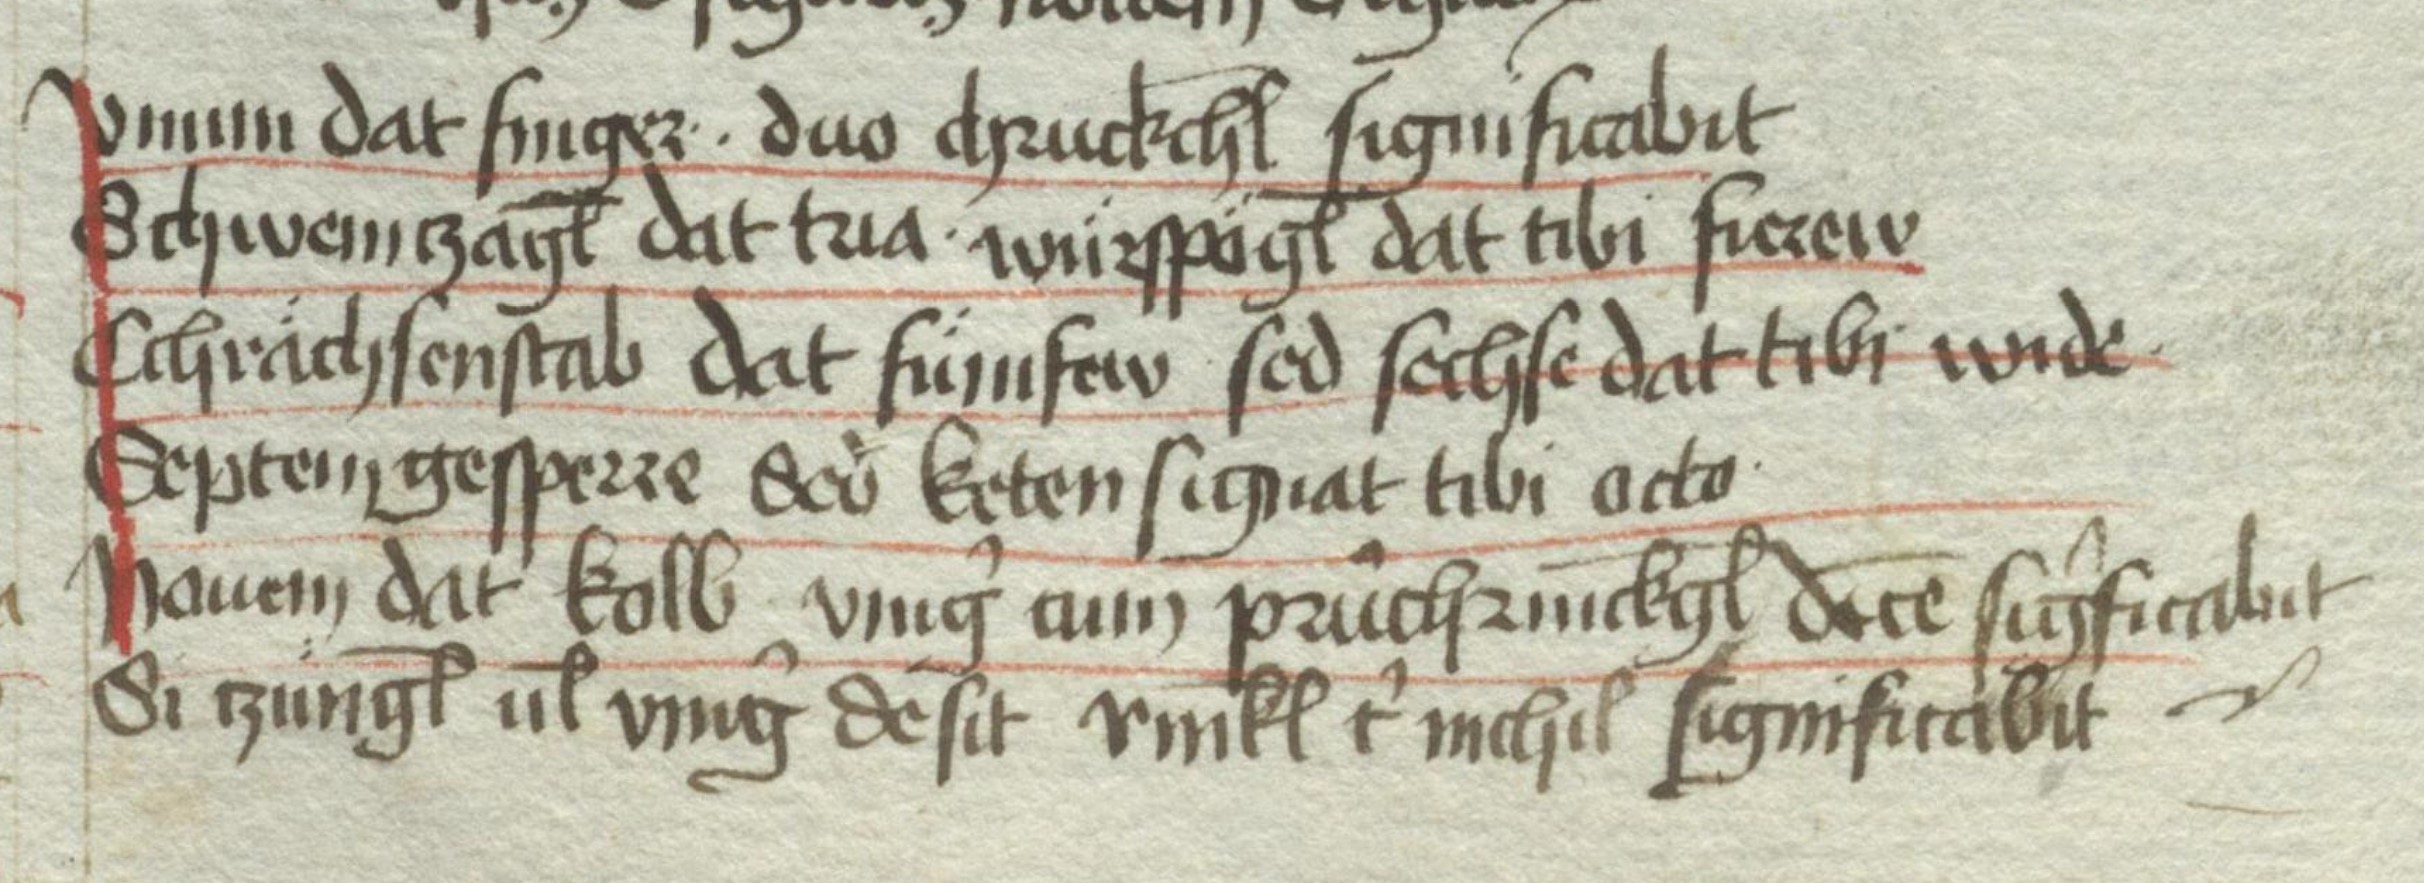 vnum dat finger · duo chruckchl significabit
Schweintzagl dat tria · würsspigl dat tibi fierew
Schrächsenstab dat fümfew · sed sechse dat tibi wide ·
Septem gessperre Seu keten signat tibi octo ·
Nouem dat kolb vnig cum prüchrinckgl dece sigficabit
Si tzüngl ul vnig desit rinkl nichil significabit